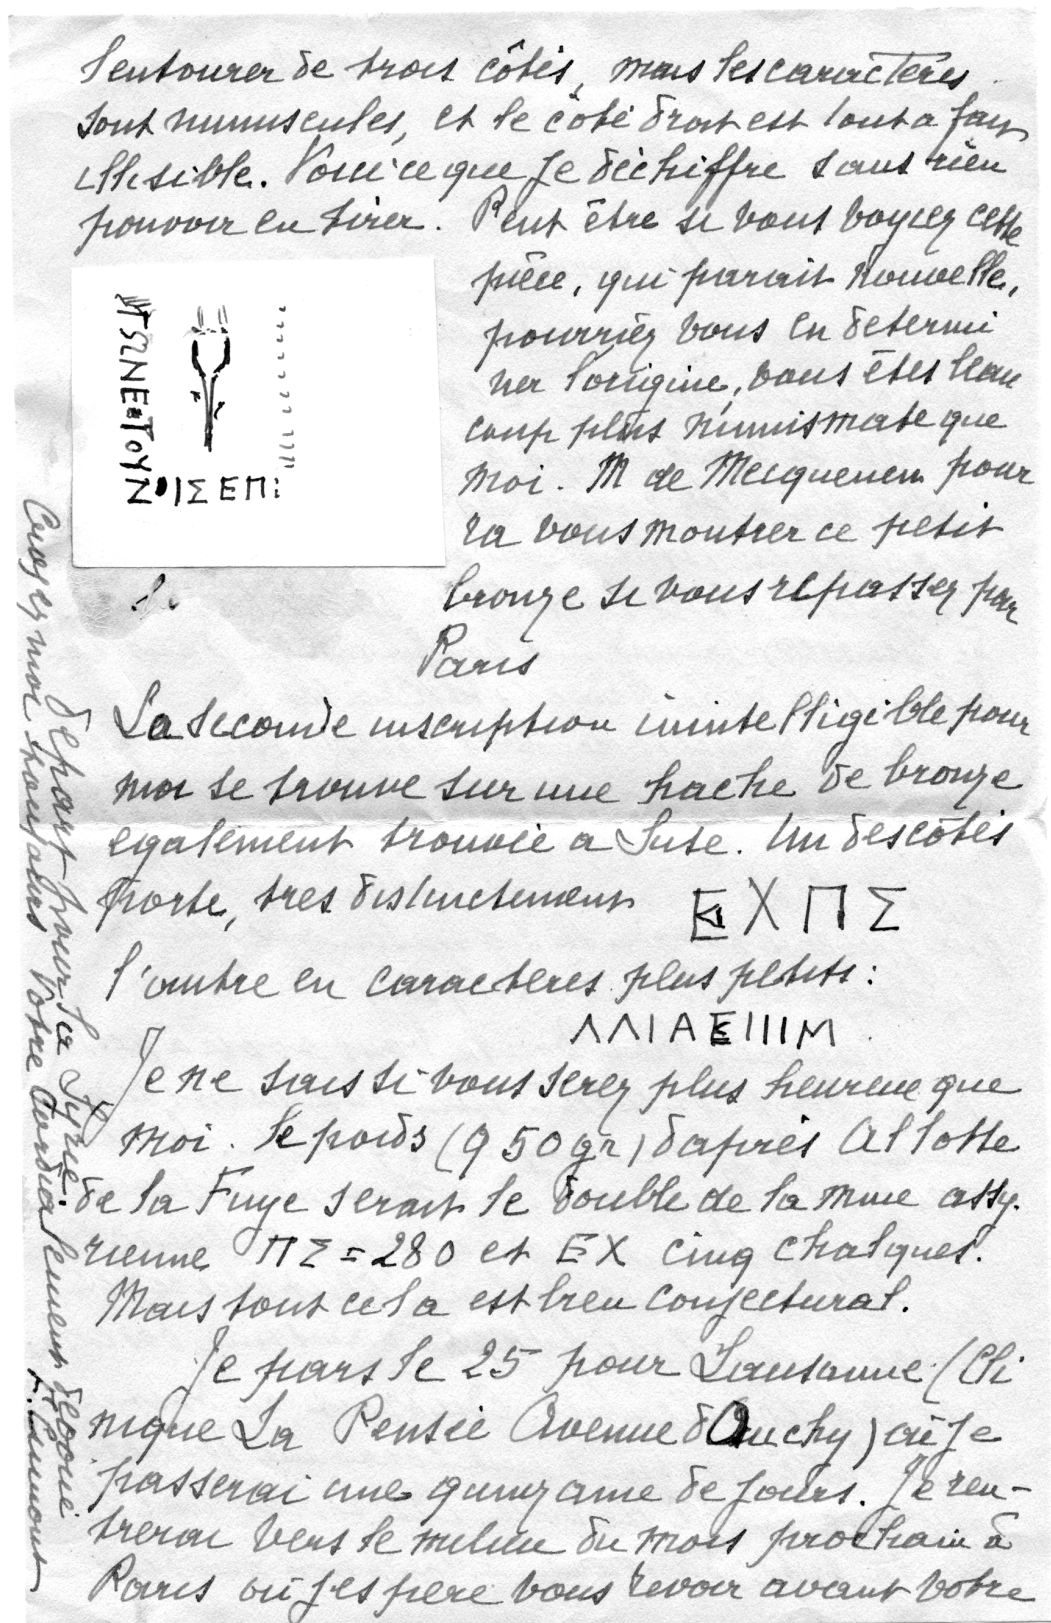 l'entourer de trois côtés, mais les caractères
sont minuscules, et le côté droit est tout a fait
illisible. Voici ce que je déchiffre sans rien
pouvoir en tirer. Peut être si vous voyiez cette
pièce, qui parait nouvelle,
pourriez vous en determi
ner l'origine, vous êtes beau
coup plus numismate que
moi. M de Mecquenem pour
ra vous montrer ce petit
bronze si vous repassez par
Paris
ΤΩΝΕ ΤΟΥΝ
ΙΣ ΕΠΙ
La seconde inscription inintelligible pour
moi se trouve sur une hache de bronze
egalement trouvée a Suse. Un des côtés
porte, tres distinctement ΕΧΠΣ
l'autre en caracteres plus petits:
ΛΛΙΑΕΙΙΙΜ
Je ne sais si vous serez plus heureux que
moi. Le poids (950 gr) d'après Allotte
de la Fuye serait le double de la mine assy.
rienne ΠΣ = 280 et ΕΧ cinq chalques.
Mais tout cela est bien conjectural.
Je pars le 25 pour Lausanne (Cli
nique La Pensée Avenue d'Ouchy) où je
passerai une quinzaine de jours. Je ren-
trerai vers le milieu du mois prochain à
Paris où j'espere vous revoir avant votre
départ pour la Syrie.
Croyez moi toujours votre cordialement dévoué
F. Cumont